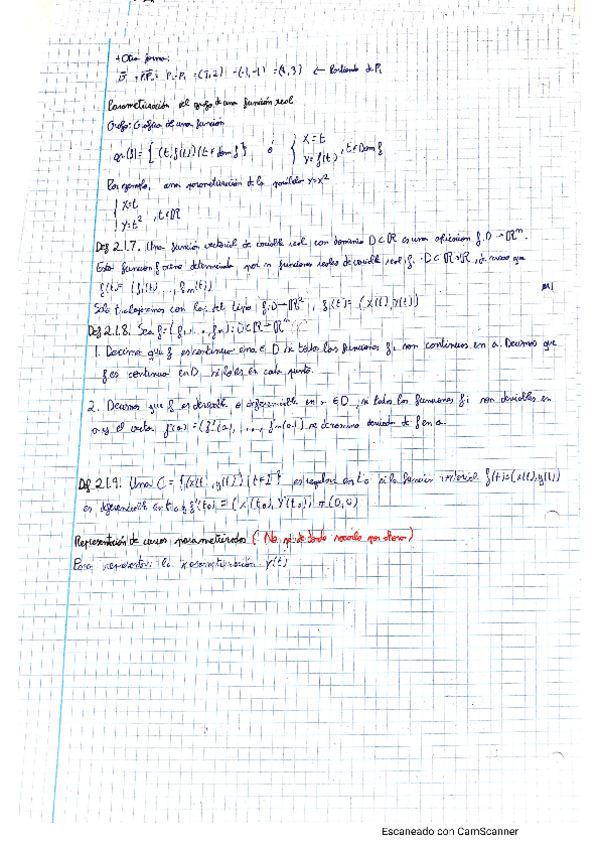 Otra forma:
Parametrización del grafo de una función real
Grafo: Gráfica de una función
gr(f) = { (t, f(t)) | t ∈ Dom f } ó { x = t y = f(t) , t ∈ Dom f
Por ejemplo, una parametrización de la parábola y = x²
{ x = t
{ y = t² , t ∈ ℝ
Def 2.1.7. Una función vectorial de variable real con dominio D ⊂ ℝ es una aplicación f: D → ℝⁿ.
Esta función f viene determinada por n funciones reales de variable real, fᵢ: D ⊂ ℝ → ℝ, de modo que
Solo trabajaremos con las del tipo f: D → ℝ², f(t) = (x(t), y(t))
Def 2.1.8. Sea f = (f₁, ..., fₙ): D ⊂ ℝ → ℝⁿ
1. Decimos que f es continua en a ∈ D si todas las funciones fᵢ son continuas en a. Decimos que
f es continua en D si lo es en cada punto.
2. Decimos que f es derivable o diferenciable en ∈ D, si todas las funciones fᵢ son derivables en
a y el vector f'(a) = (f₁'(a), ..., fₙ'(a)) se denomina derivada de f en a.
Def 2.1.9. Una C = {(x(t), y(t)) | t ∈ I} es regular en t₀ si la función vectorial f(t) = (x(t), y(t))
es diferenciable en t₀ y f'(t₀) = (x'(t₀), y'(t₀)) ≠ (0,0)
Representación de curvas parametrizadas
Para representar la parametrización γ(t)
Escaneado con CamScanner